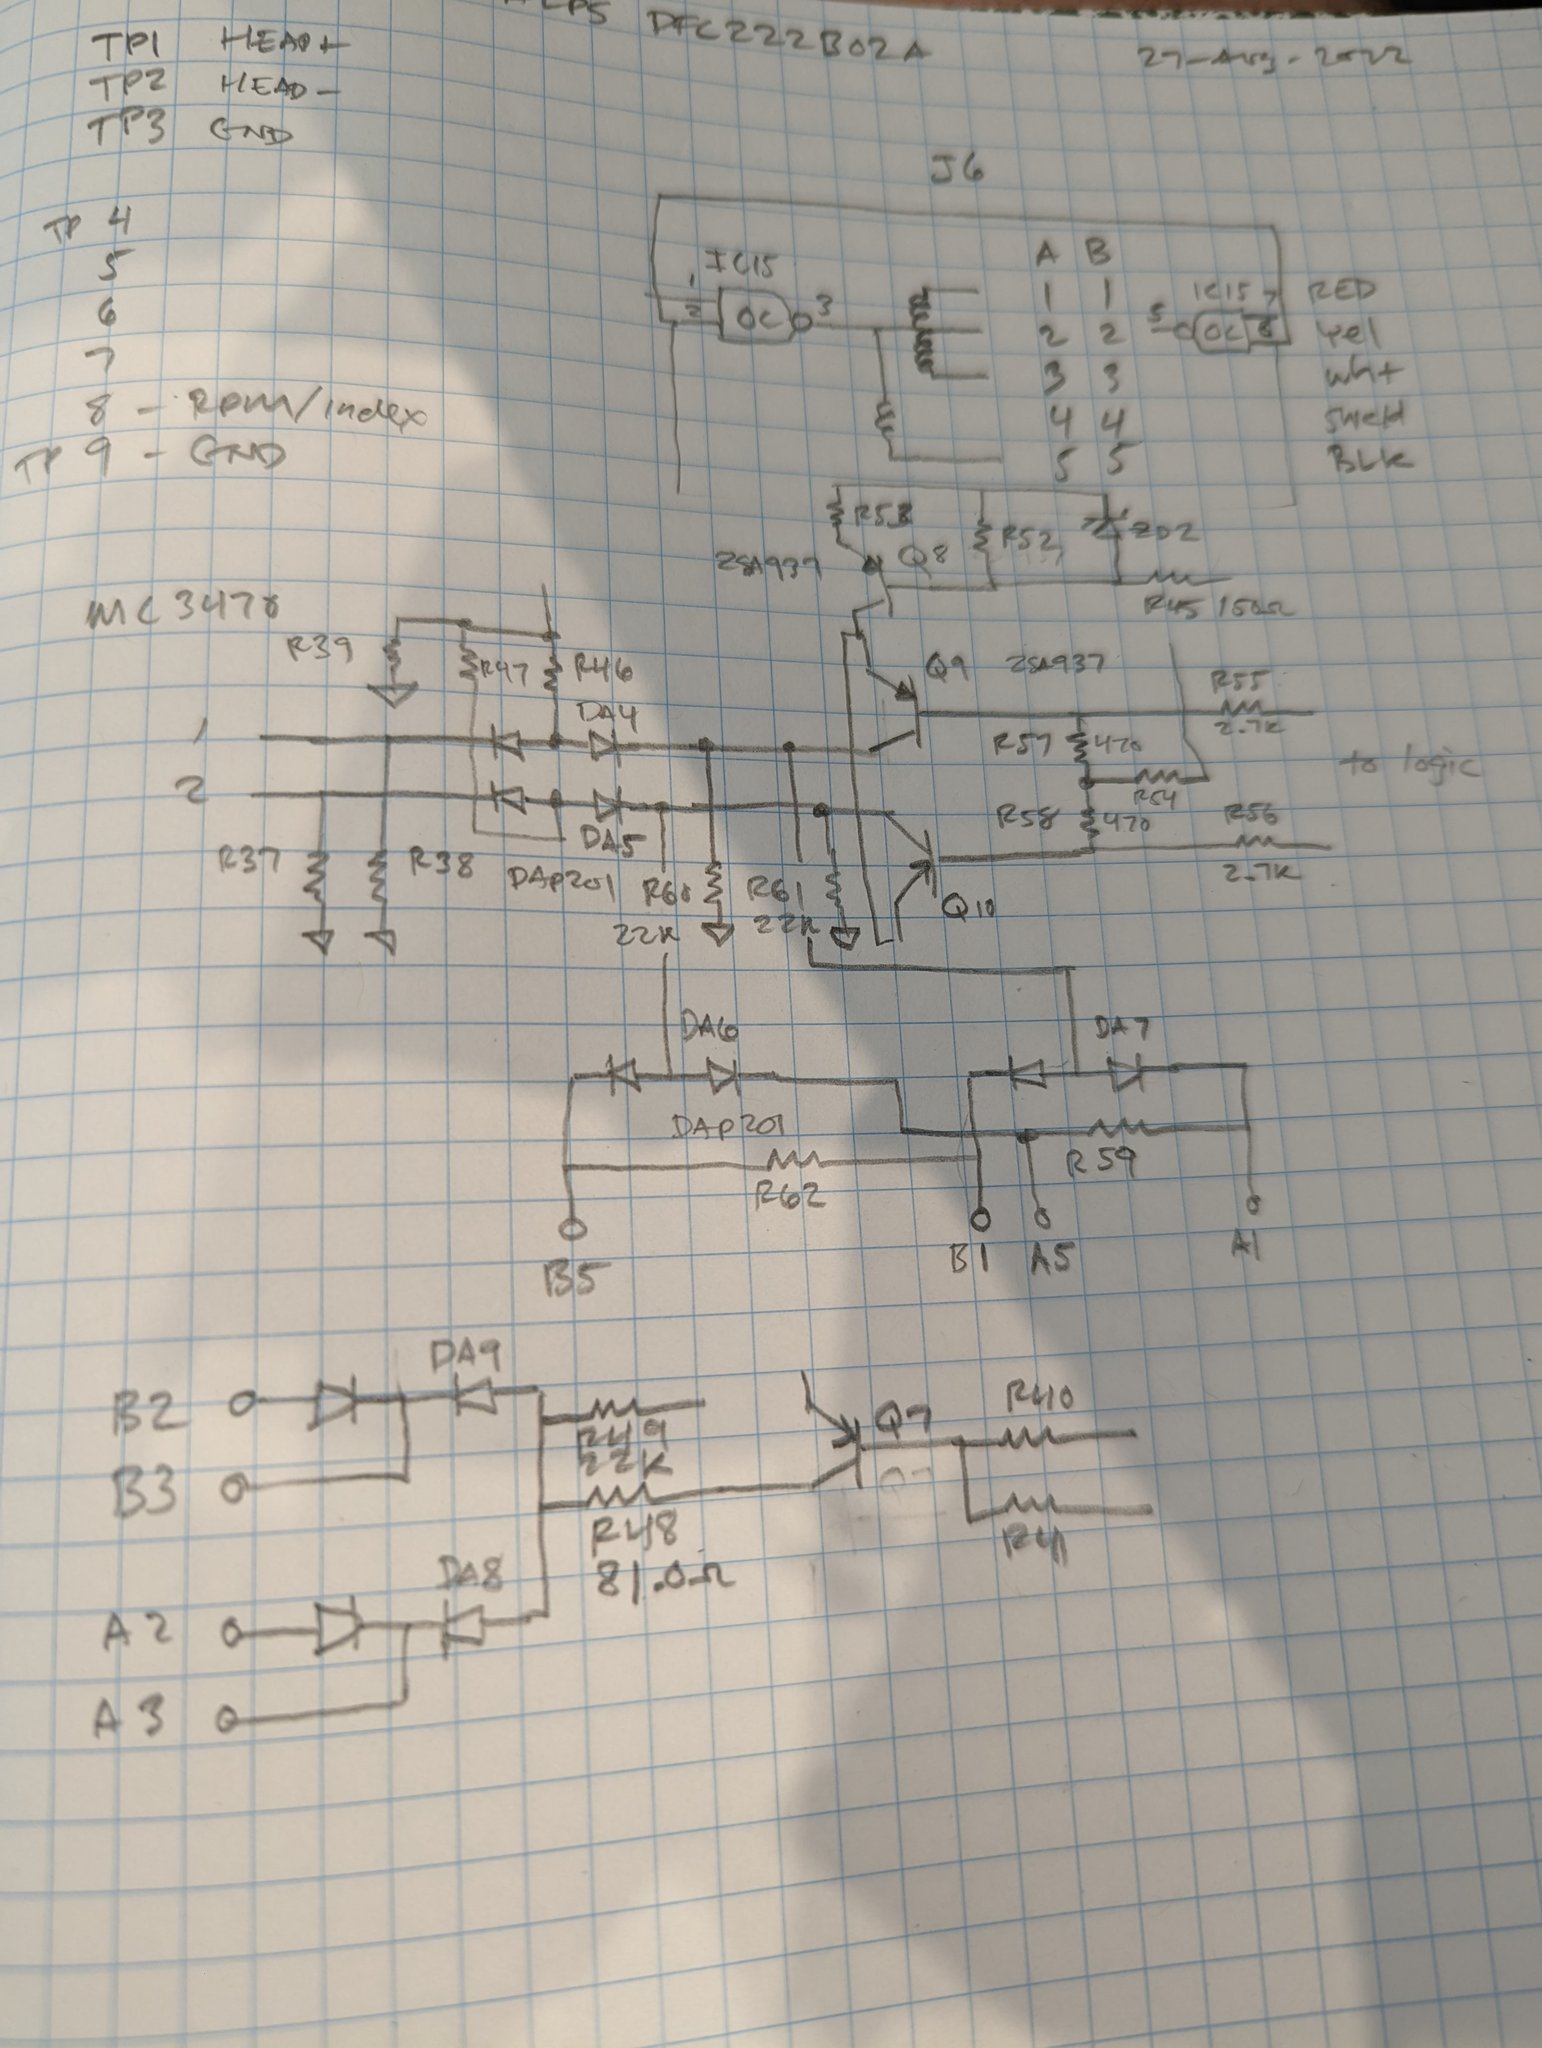 DFC222B02A
27-Aug-2022
TP1 HEAD+
TP2 HEAD-
TP3 GND
TP 4
5
6
7
8 - RPM/index
TP 9 - GND
J6
A B
IC15
1
2
OC
3
1 1
2 2
3 3
4 4
5 5
IC15
7
5
OC
6
RED
Yel
Wht
Shield
BLK
R53
R52
ZD2
2SA937
Q8
R45 150Ω
MC3470
R39
R47
R46
DA4
Q9 2SA937
R55
2.7K
1
R57
470
to logic
2
R54
DA5
R58
470
R56
2.7K
R37
R38
DAP201
R60
22K
R61
22K
Q10
DA6
DA7
DAP201
R59
R62
B5
B1
A5
A1
DA9
B2
R49
22K
Q7
R40
B3
R48
81.0Ω
R41
DA8
A2
A3